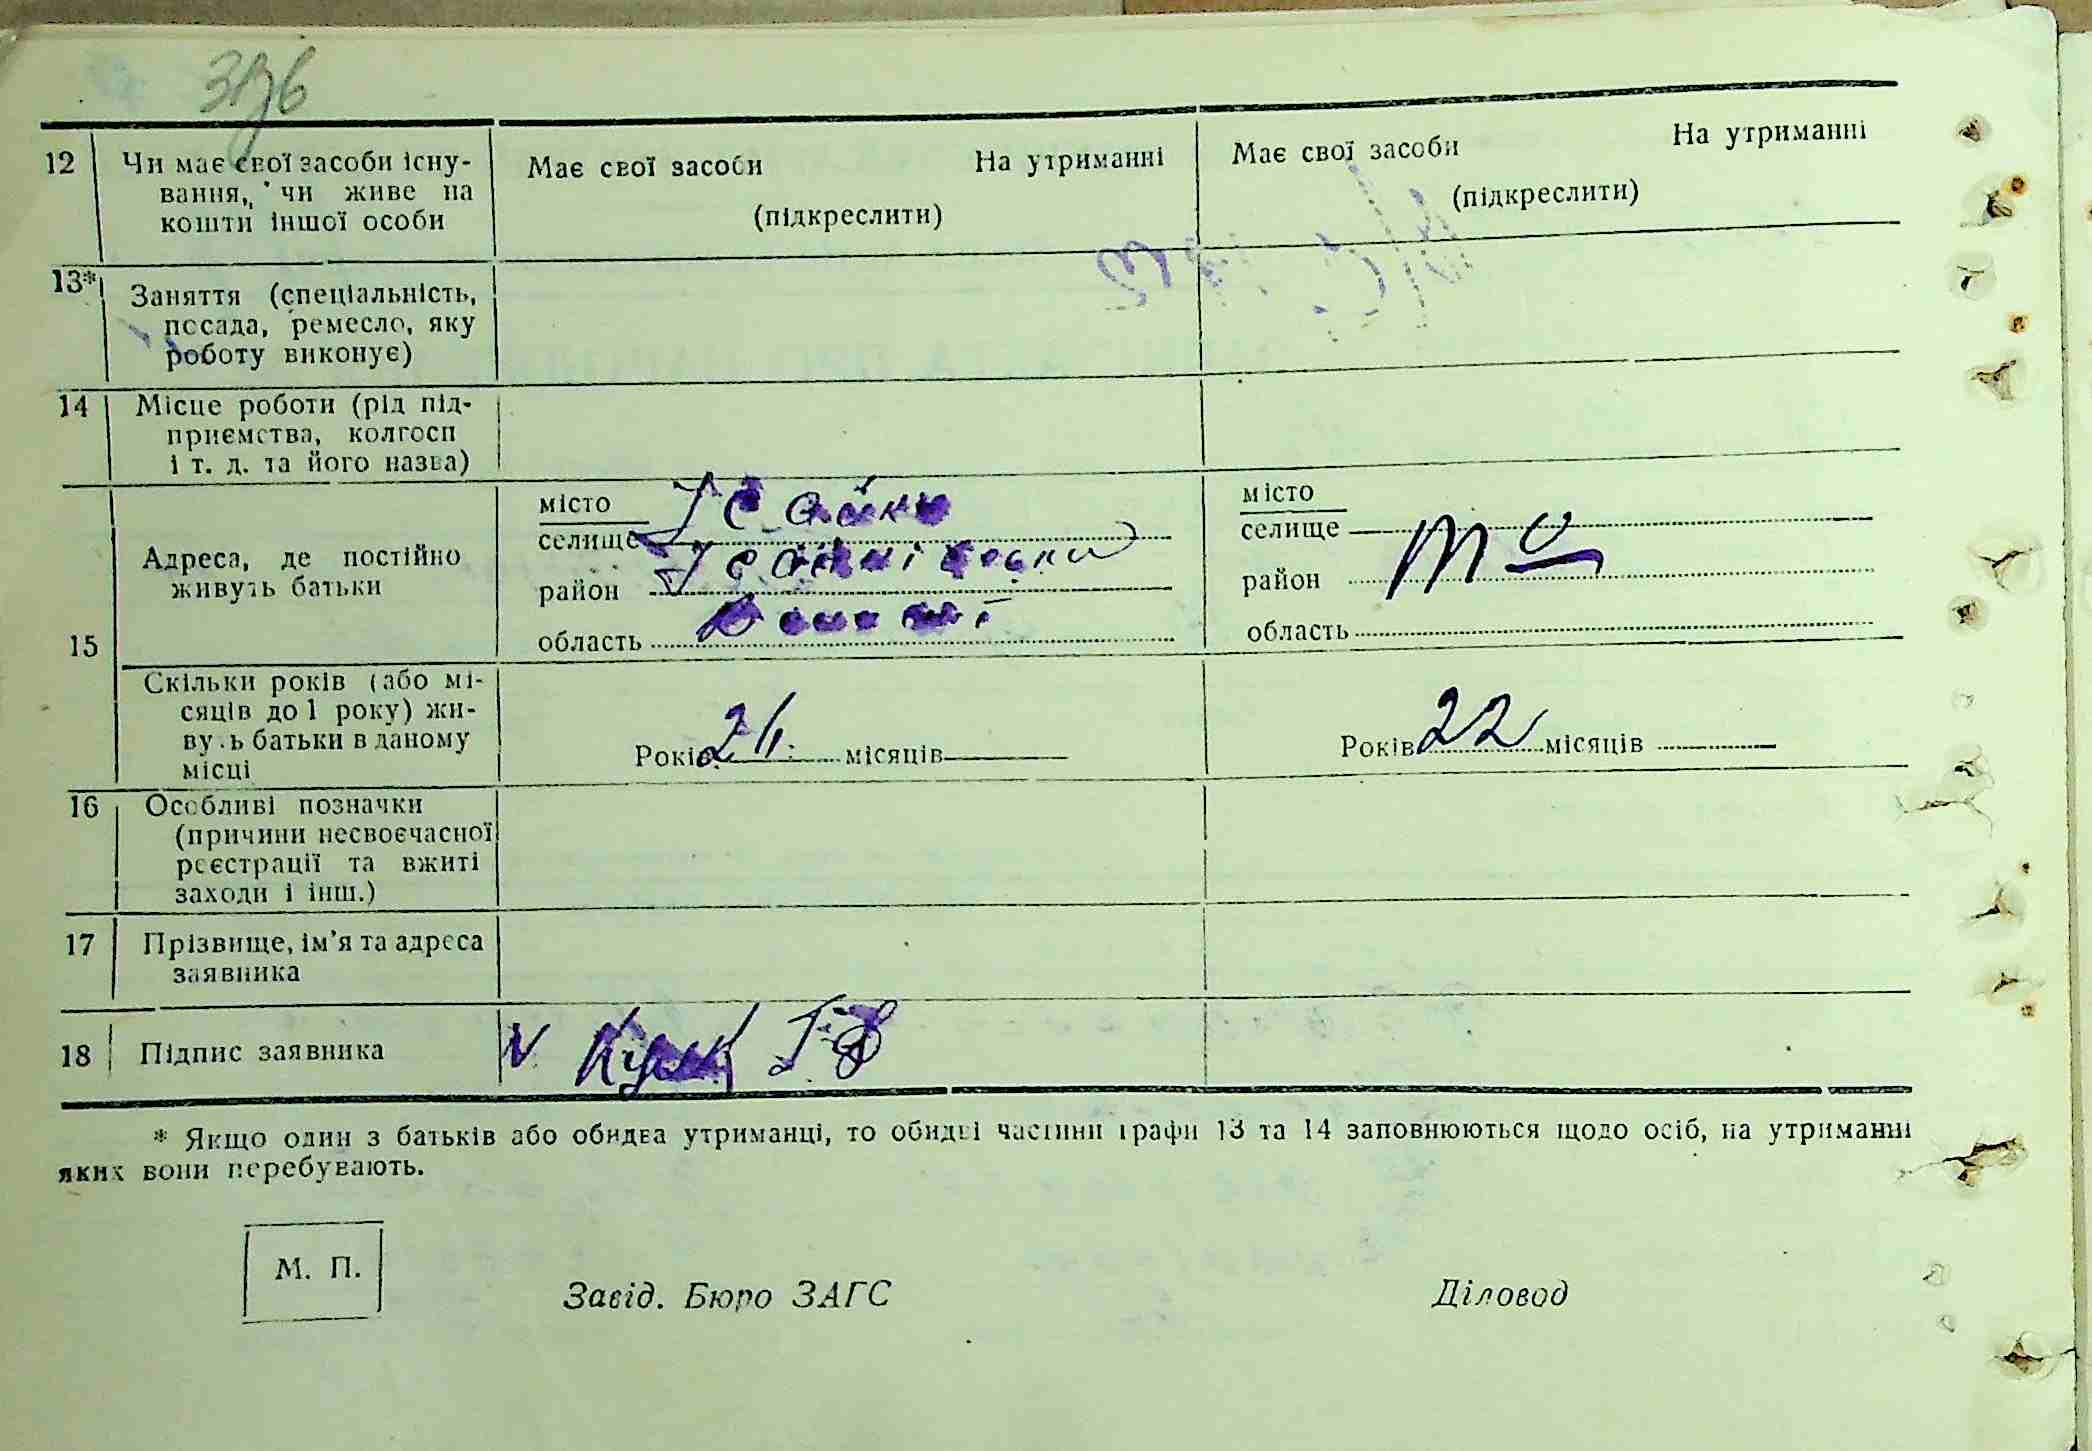 12 Чи має свої засоби існу-
вання, чи живе на
кошти іншої особи
Має свої засоби На утриманні
(підкреслити)
Має свої засоби На утриманні
(підкреслити)
13* Заняття (спеціальність,
посада, ремесло, яку
роботу виконує)
14 Місце роботи (рід під-
приємства, колгосп
і т. д. та його назва)
15
Адреса, де постійно
живуть батьки
місто
селище
район
область
місто
селище
район
область
Скільки років (або мі-
сяців до 1 року) жи-
вуть батьки в даному
місці
Років місяців
Років 22 місяців
16 Особливі позначки
(причини несвоєчасної
реєстрації та вжиті
заходи і інш.)
17 Прізвище, ім’я та адреса
заявника
18 Підпис заявника
* Якщо один з батьків або обидва утриманці, то обидві частини графи 13 та 14 заповнюються щодо осіб, на утриманні
яких вони перебувають.
М. П.
Завід. Бюро ЗАГС Діловод